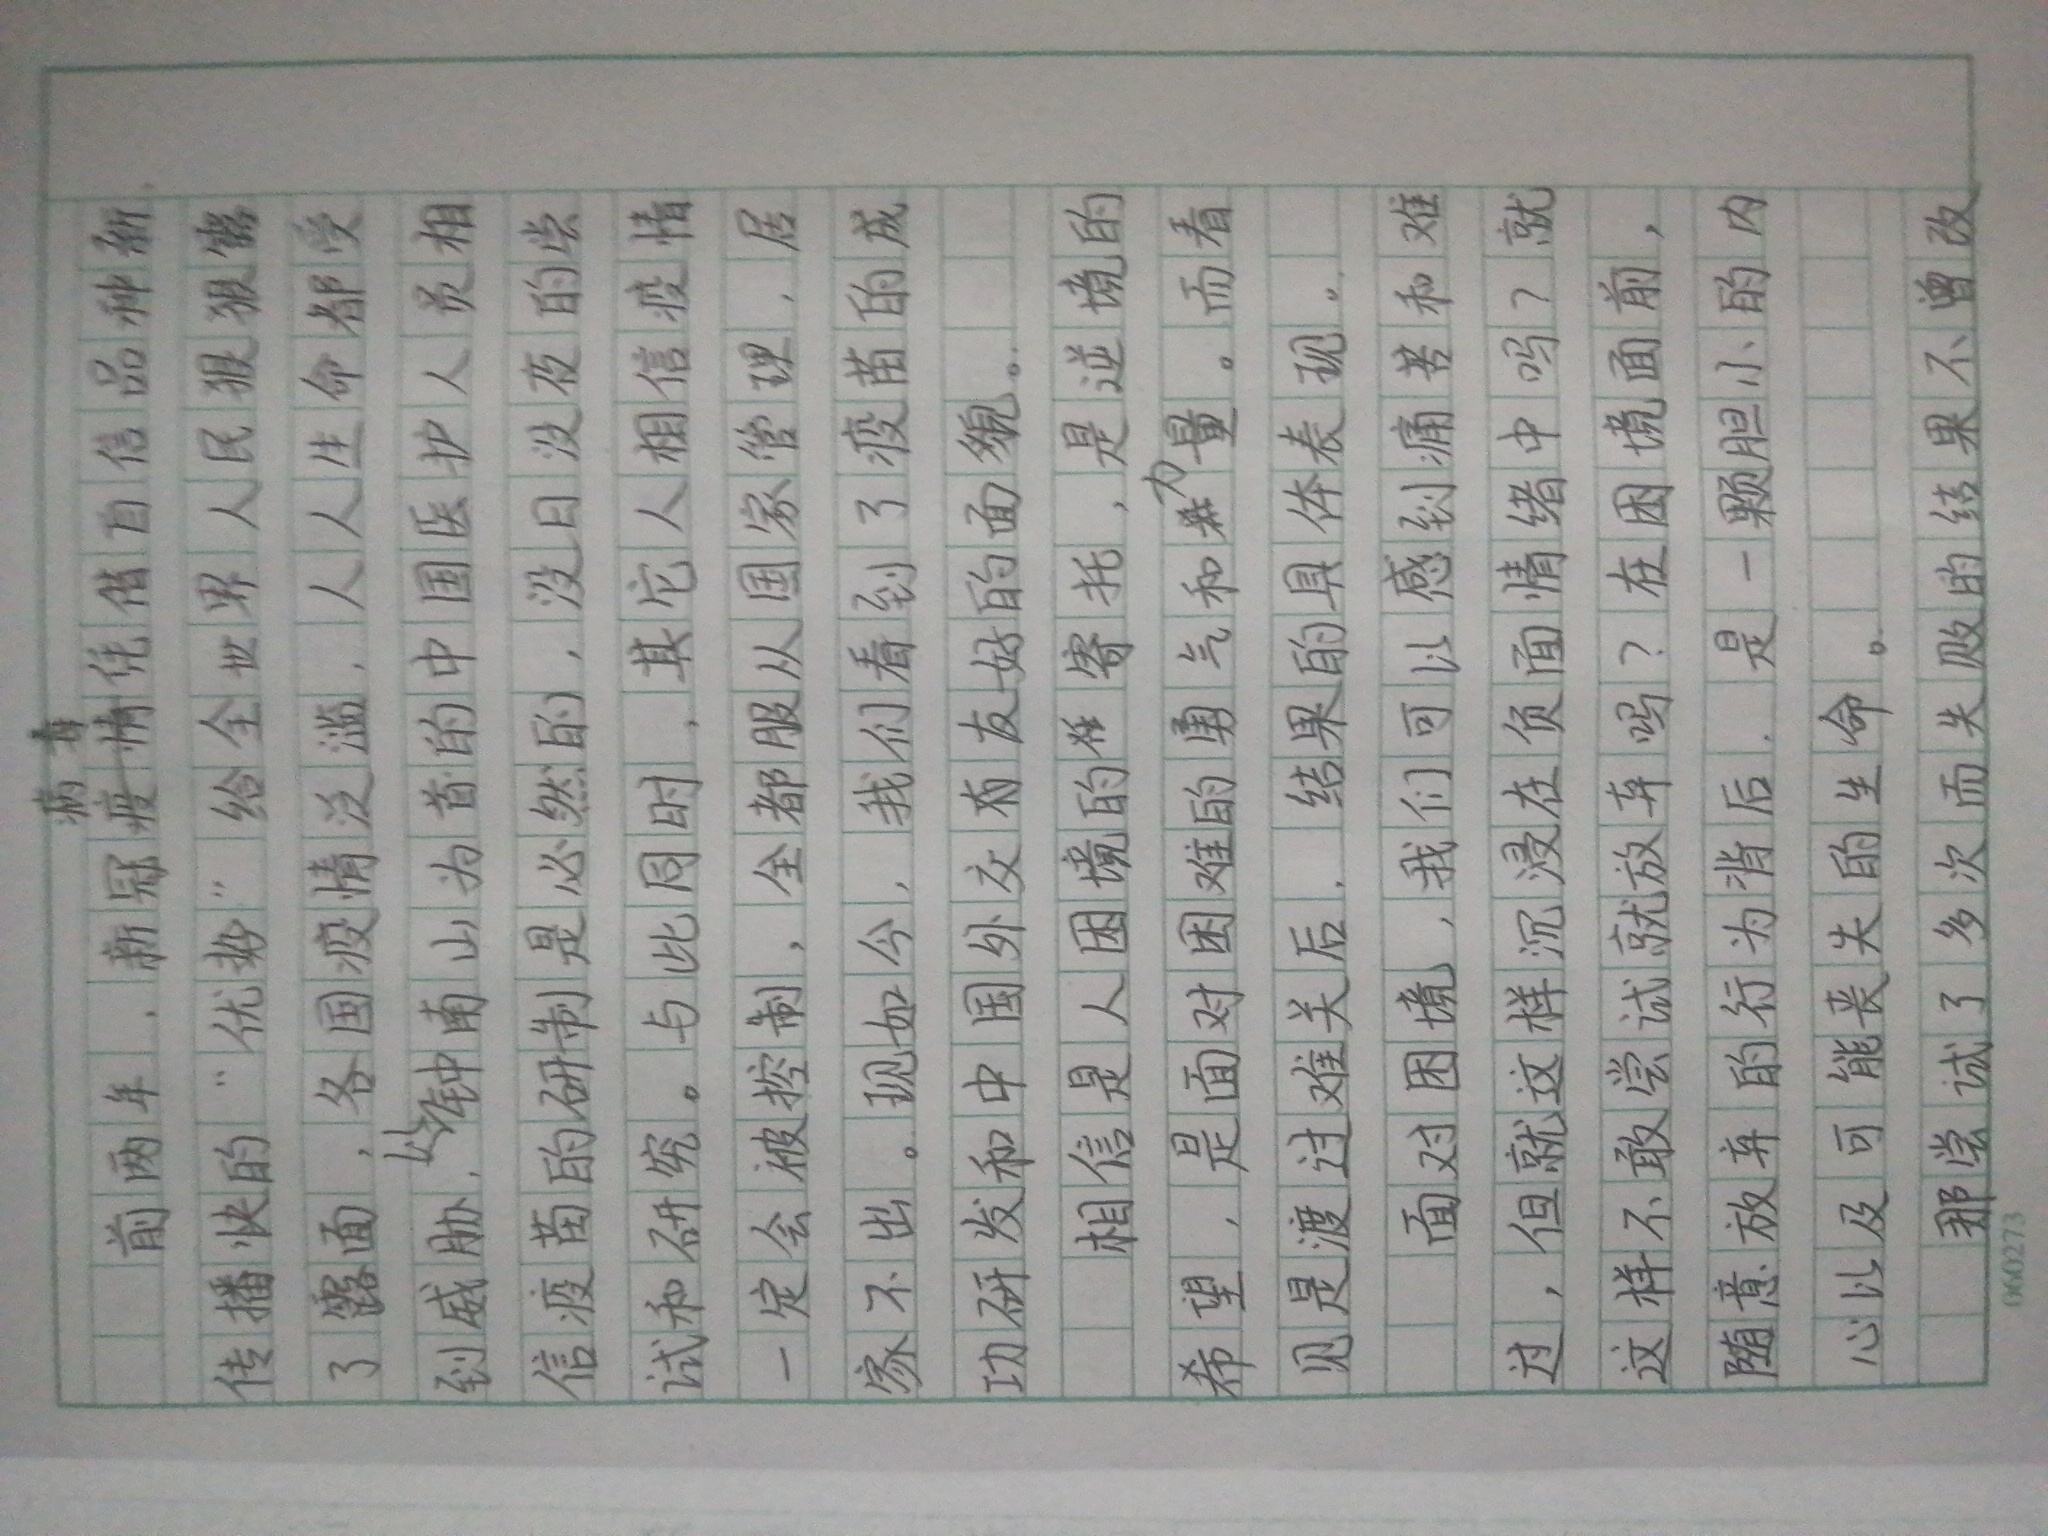 前两年，新冠病毒疫情凭借自信品种新
传播快的“优势”给全世界人民狠狠
了露面，各国疫情泛滥，人人生命都受
到威胁，以钟南山为首的中国医护人员相
信疫苗的研制是必然的，没日没夜的尝
试和研究。与此同时，其它人相信疫情
一定会被控制，全都服从国家管理，居
家不出。现如今，我们看到了疫苗的成
功研发和中国外交有友好的面貌。
相信是人困境的寄托，是逆境的
希望，是面对困难的勇气和力量。而看
见是渡过难关后，结果的具体表现。
面对困境，我们可以感到痛苦和难
过，但就这样沉浸在负面情绪中吗？就
这样不敢尝试就放弃吗？在困境面前，
随意放弃的行为背后，是一颗胆小的内
心以及可能丧失的生命。
那尝试了多次而失败的结果不曾改
0660273